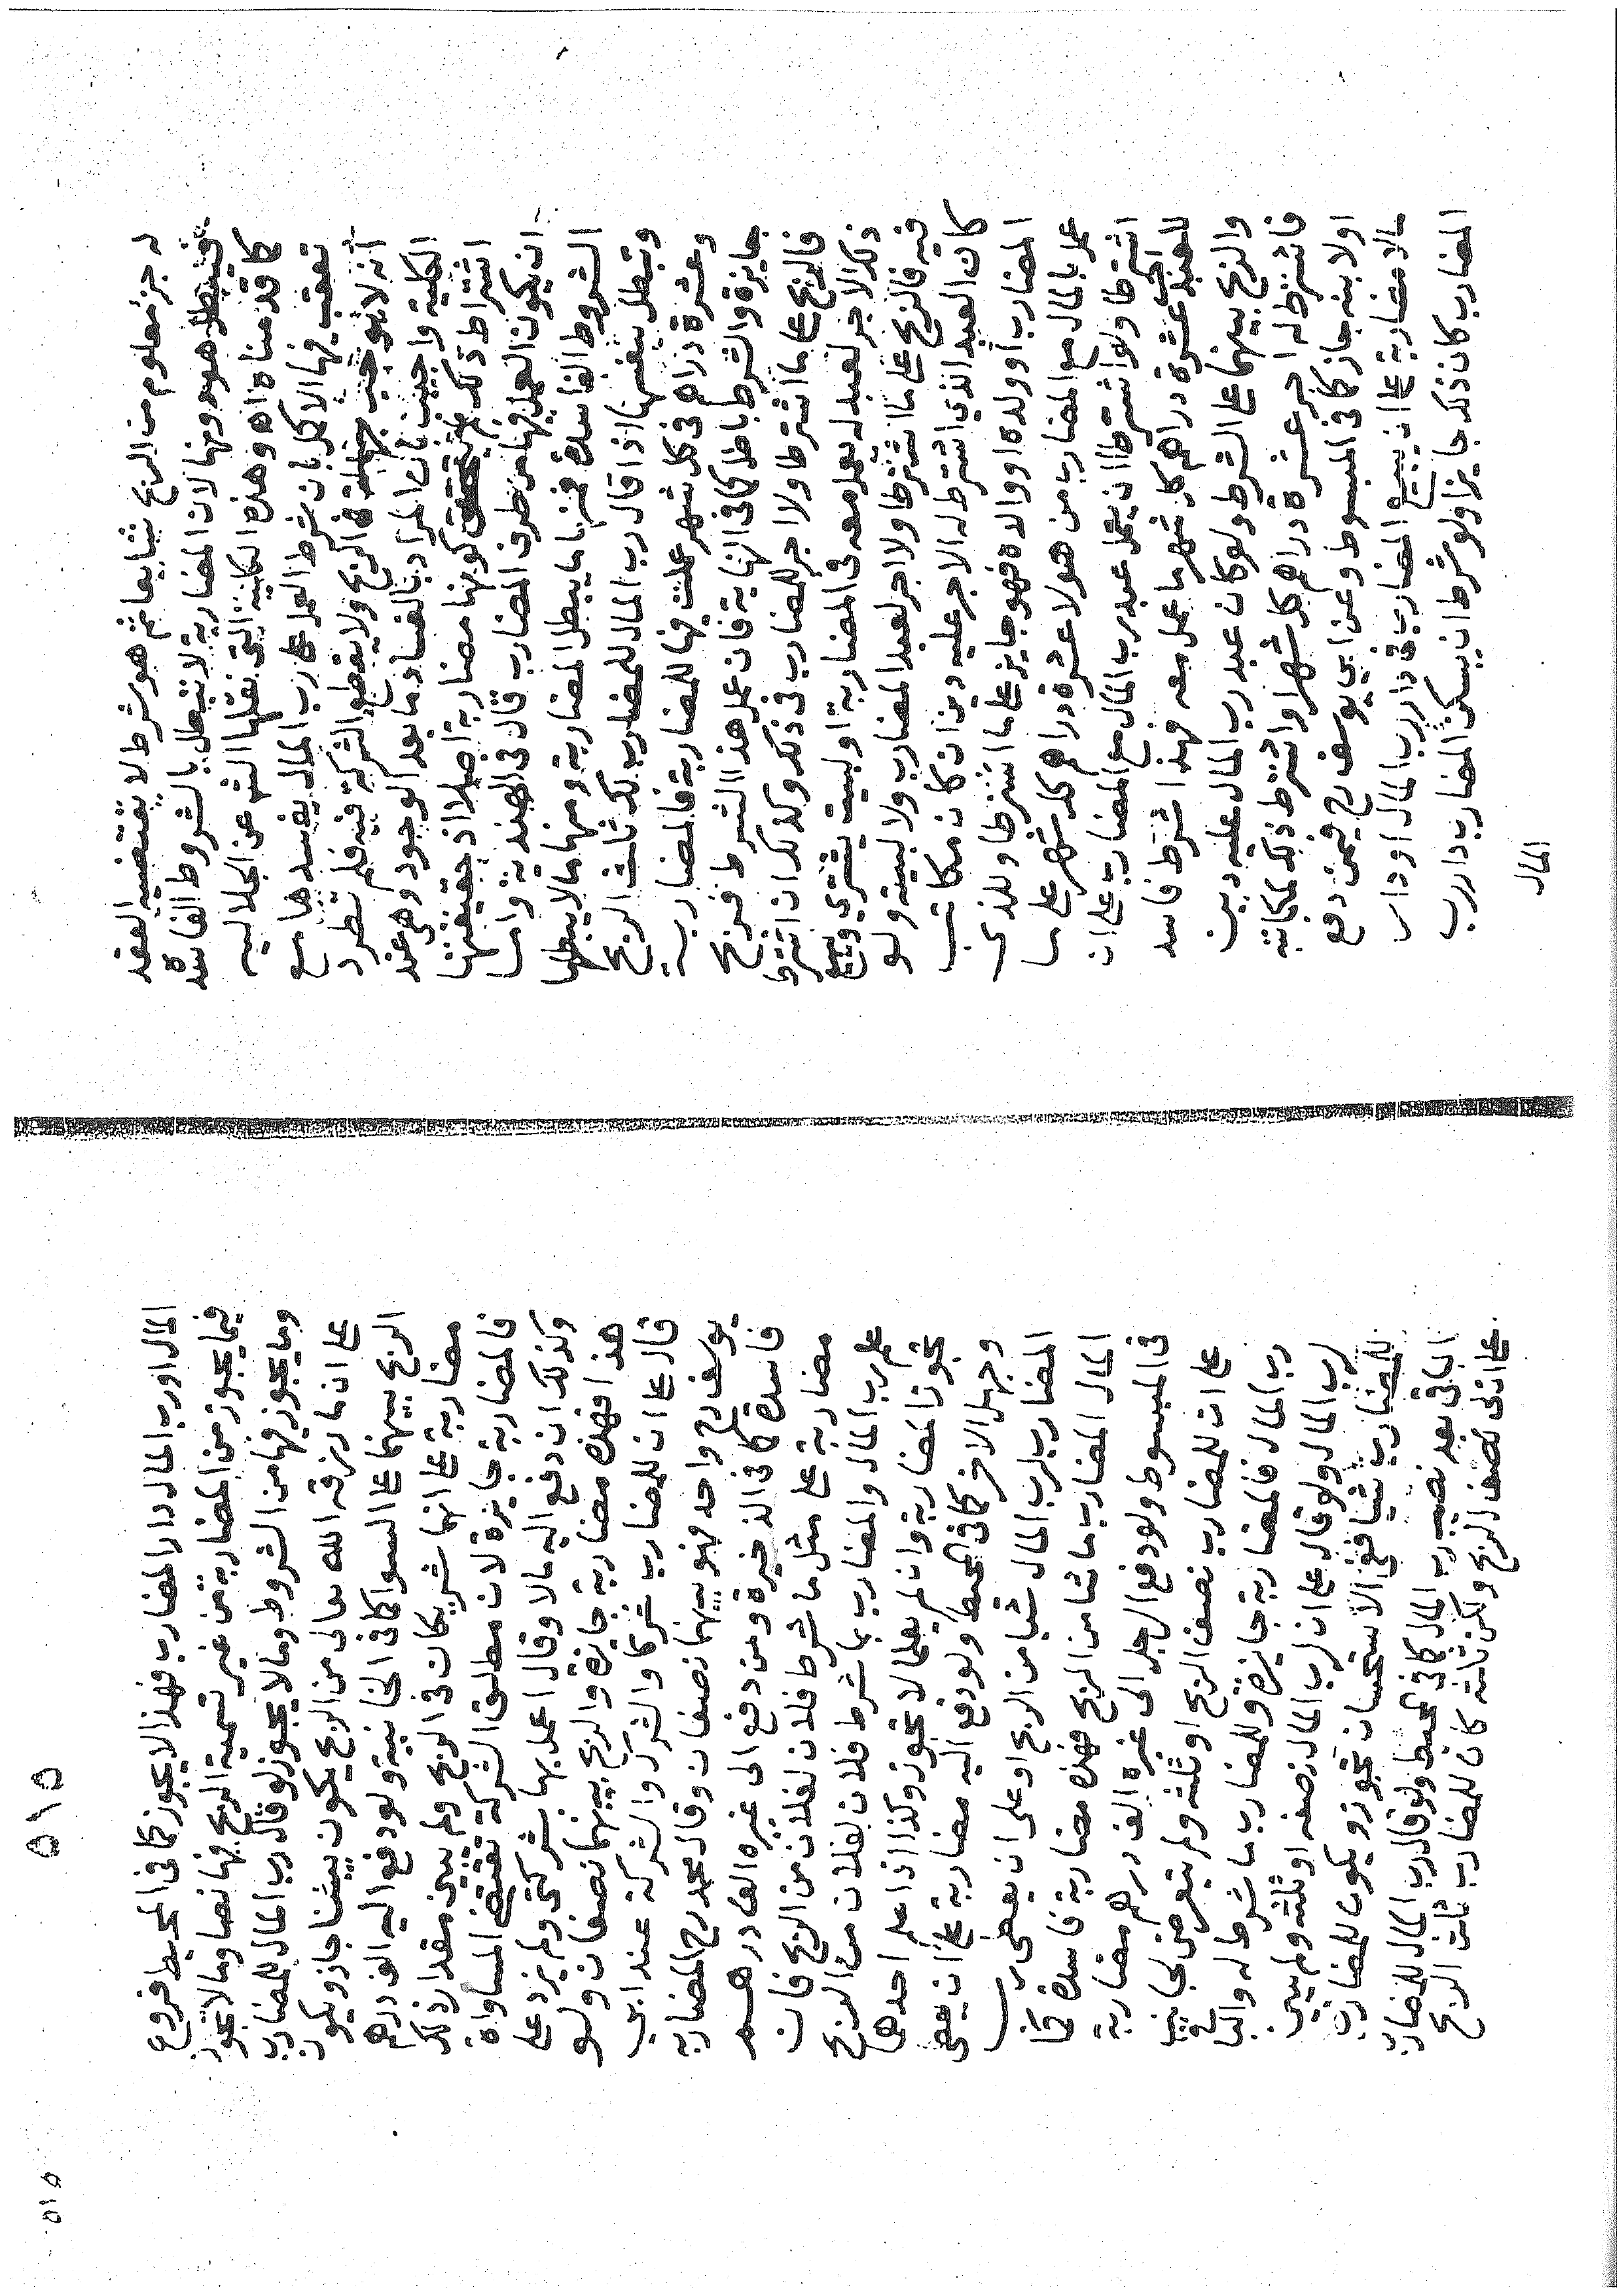 له جزء معلوم من الربح شايعا ثم هو شرط لا يقتضيه العقد
فيبطل هو ومنها لان المضاربة لا تبطل بالشروط الفاسدة
كما قدمناه اه وهذه الكلية التي نقلها الش عن الجلاليه
تعقب فيها الاكمل بان شرط العمل على رب المال يفسدها مع
انه لا يوجب جهالة في الربح ولا يقطع الشركة فيه فلم تطرد
الكلية واجيب بان المراد بالفساد ما بعد الوجود وهي عند
اشتراط ذلك لم تتحقق كونها مضاربة اصلا اذ حقيقتها
ان يكون العمل فيها من طرف المضارب قال في الهندية واما
الشروط الفاسدة فمنها ما يبطل المضاربة ومنها ما لا يبطلها
وتبطل بنفسها اذا قال رب المال للمضارب لك ثلث الربح
وعشرة دراهم في كل شهر عملت فيها للمضاربة فالمضاربه
جايزة والشرط باطل كما في النهاية فان عمل هذا الشرط فربح
فالربح على ما اشترطا ولا اجر للمضارب في ذلك وكذلك ان اشترط
ذلك الاجر لعبد له يعمل معه في المضاربة او لبيت يشتري ويبيع
فيه فالربح على ما اشترطا ولا اجر لعبد المضارب ولا لبيته ولو
كان العبد الذي اشترط له الاجر عليه دين ان كان مكاتب
المضارب او ولده او والده فهو جايز على ما اشترطا وللذي
عمل بالمال مع المضارب من هولا عشرة دراهم كل شهر على ما
اشترطا ولو اشترطا ان يعمل عبد رب المال مع المضارب على ان
للعبد اجر عشرة دراهم كل شهر ما عمل معه فهذا شرط فاسد
والربح بينهما على الشرط ولو كان عبد رب المال عليه دين
فاشترط له اجر عشرة دراهم كل شهر او اشترط ذلك لمكاتبه
او لابنه جاز كما في المبسوط وعن ابي يوسف رح فيمن دفع
مالا مضاربة على ان يبيع المضارب في دار رب المال او دار
المضارب كان ذلك جايزا ولو شرط ان يسكن المضارب دار رب
المال
٥١٥
٥١٥
المال او رب المال دار المضارب فهذا لا يجوز كما في المحيط فروع
فيما يجوز من المضاربة من غير تسمية الربح فيها نصا وما لا تجوز
وما يجوز فيها من الشروط وما لا يجوز لو قال رب المال للمضارب
على ان ما رزقه الله تعالى من الربح يكون بيننا جاز ويكون
الربح بينهما على السوا كما في الخانية ولو دفع اليه الف درهم
مضاربة على انهما شريكان في الربح ولم يبين مقدار ذلك
فالمضاربة جايزة لان مطلق الشركة تقتضي المساواة
وكذلك ان دفع اليه مالا وقال اعمل بها بشركتي ولم يزد على
هذا فهذه مضاربة جايزة والربح بينهما نصفان ولو
قال على ان للمضارب شركا والشرك والشركة عند ابي
يوسف رح واحد فهو بينهما نصفان وقال محمد رح المضاربه
فاسدة كما في الذخيرة ومن دفع الى غيره الف درهم
مضاربة على مثل ما شرط فلان لفلان من الربح فان
علم رب المال والمضارب بما شرط فلان لفلان من الربح
تجوز المضاربة وان لم يعلما لا تجوز وكذا اذا علم احدهما
وجهل الاخر كما في المحيط ولو دفع اليه مضاربة على ان يعطي
المضارب لرب المال شيا من الربح او على ان يعطي رب
المال المضارب ما شا من الربح فهذه مضاربة فاسدة كما
في المبسوط ولو دفع الرجل الى غيره الف درهم مضاربة
على ان للمضارب نصف الربح او ثلثه ولم يتعرض لجانب
رب المال فالمضاربة جايزة وللمضارب ما شرط له والباقي
لرب المال ولو قال على ان لرب المال نصفه او ثلثه ولم يبين
للمضارب شيا ففي الاستحسان تجوز ويكون للمضارب
الباقي بعد نصيب رب المال كما في المحيط ولو قال رب المال للمضارب
على ان لي نصف الربح ولك ثلثه كان للمضارب ثلث الربح